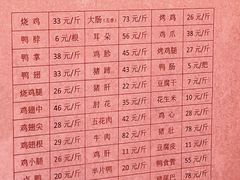 烧鸡 33元/斤 大肠(五香) 73元/斤 烤鸡 26元/斤
鸭脖 6元/根 耳朵 56元/斤 鸡爪 38元/斤
鸭掌 38元/斤 鸡胗 45元/斤 烤鸡腿 27元/斤
鸭翅 33元/斤 猪蹄 元/斤 鸭肠 5元/把
烧鸡腿 27元/斤 猪肝 元/斤 豆腐干 7元/斤
鸡翅中 46元/斤 肘花 35元/斤 花生米 10元/斤
鸡翅尖 28元/斤 五花肉 42元/斤 鸡心 28元/斤
鸡翅根 元/斤 牛肉 82元/斤 猪肚 78元/斤
鸡小腿 元/斤 鸡肝 11元/斤 豆腐皮 11元/斤
元/斤 半片鸭 20元/斤 鸭食管 55元/斤
元/斤